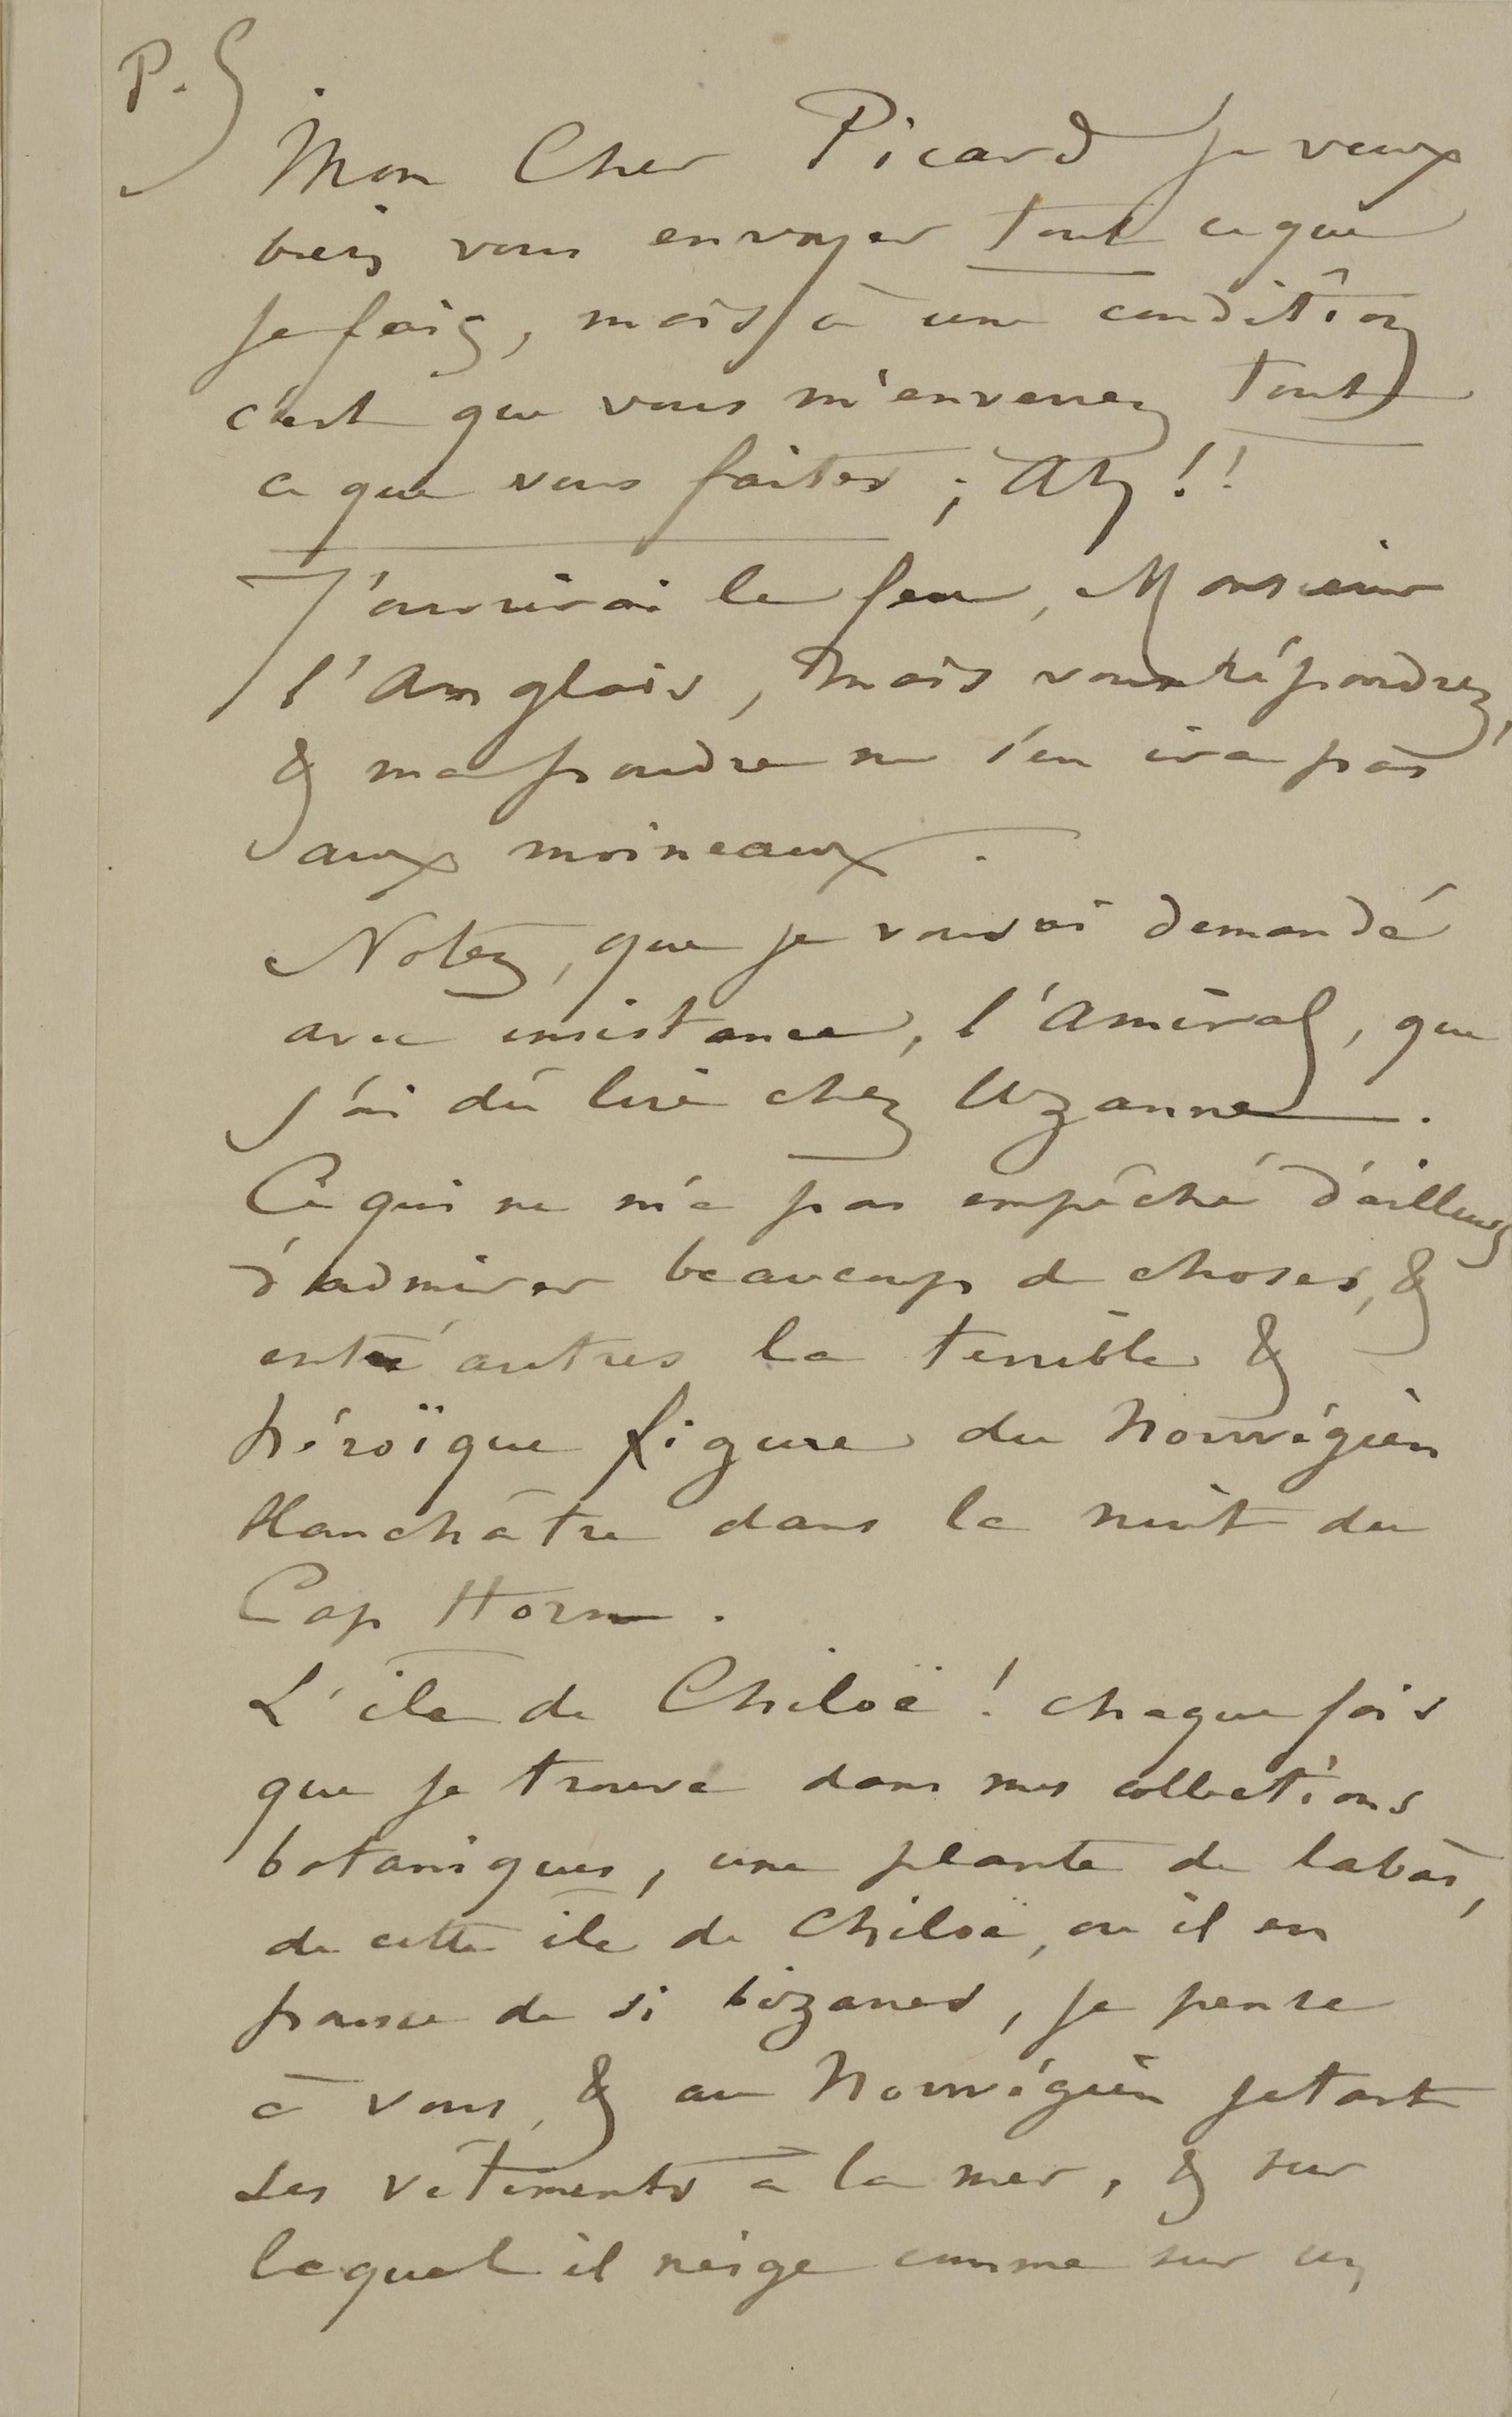 P. S
Mon Cher Picard je veux
bien vous envoyer tout ce que
je fais, mais à une condition
c'est que vous m'enverrez tout
ce que vous faites ; Ah !!
J'ouvrirai le feu, Monsieur
l'Anglais, mais vous répondrez,
& ma poudre ne s'en ira pas
aux moineaux.
Notez, que je vous ai demandé
avec insistance, l'Amiral, que
j'ai dû lire chez Uzanne.
Ce qui ne m'a pas empêché d'ailleurs
d'admirer beaucoup de choses, &
entre autres la terrible &
héroïque figure du Norwégien
blanchâtre dans la nuit du
Cap Horn.
L'île de Chiloë ! chaque fois
que je trouve dans mes collections
botaniques, une plante de labas,
de cette île de Chiloë, ou il en
pousse de si bizarres, je pense
à vous, & au Norwégien jetant
ses vêtements à la mer, & sur
lequel il neige comme sur un